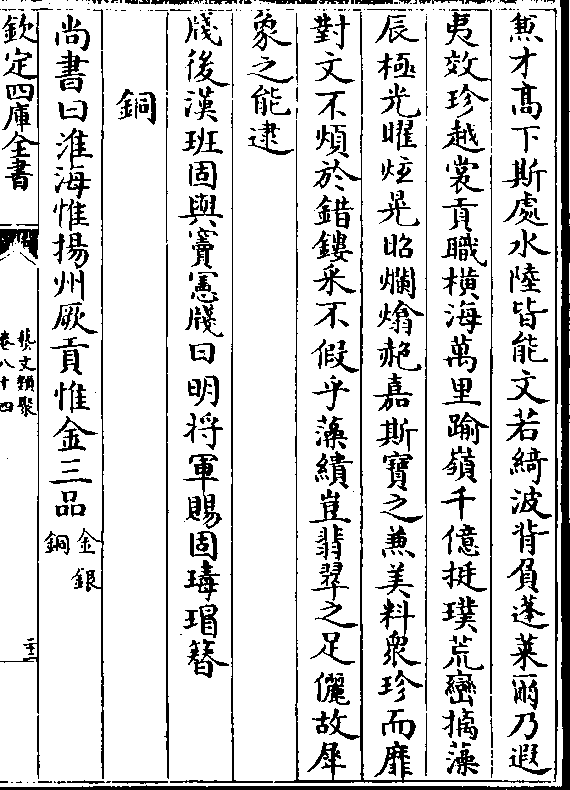 兼才髙下斯處水陸皆能文若綺波背負蓬萊爾乃遐
夷效珍越裳貢職橫海萬里踰嶺千億挺璞荒巒摛藻
辰極光曜炫晃昭爛熻赩嘉斯寶之兼美料衆珍而靡
對文不煩於錯鏤采不假乎藻繢豈翡翠之足儷故犀
象之能逮
牋後漢班固與竇憲牋曰明將軍賜固瑇瑁簪
銅
尚書曰淮海惟揚州厥貢惟金三品金銀銅
欽定四庫全書
藝文類聚
卷八十四